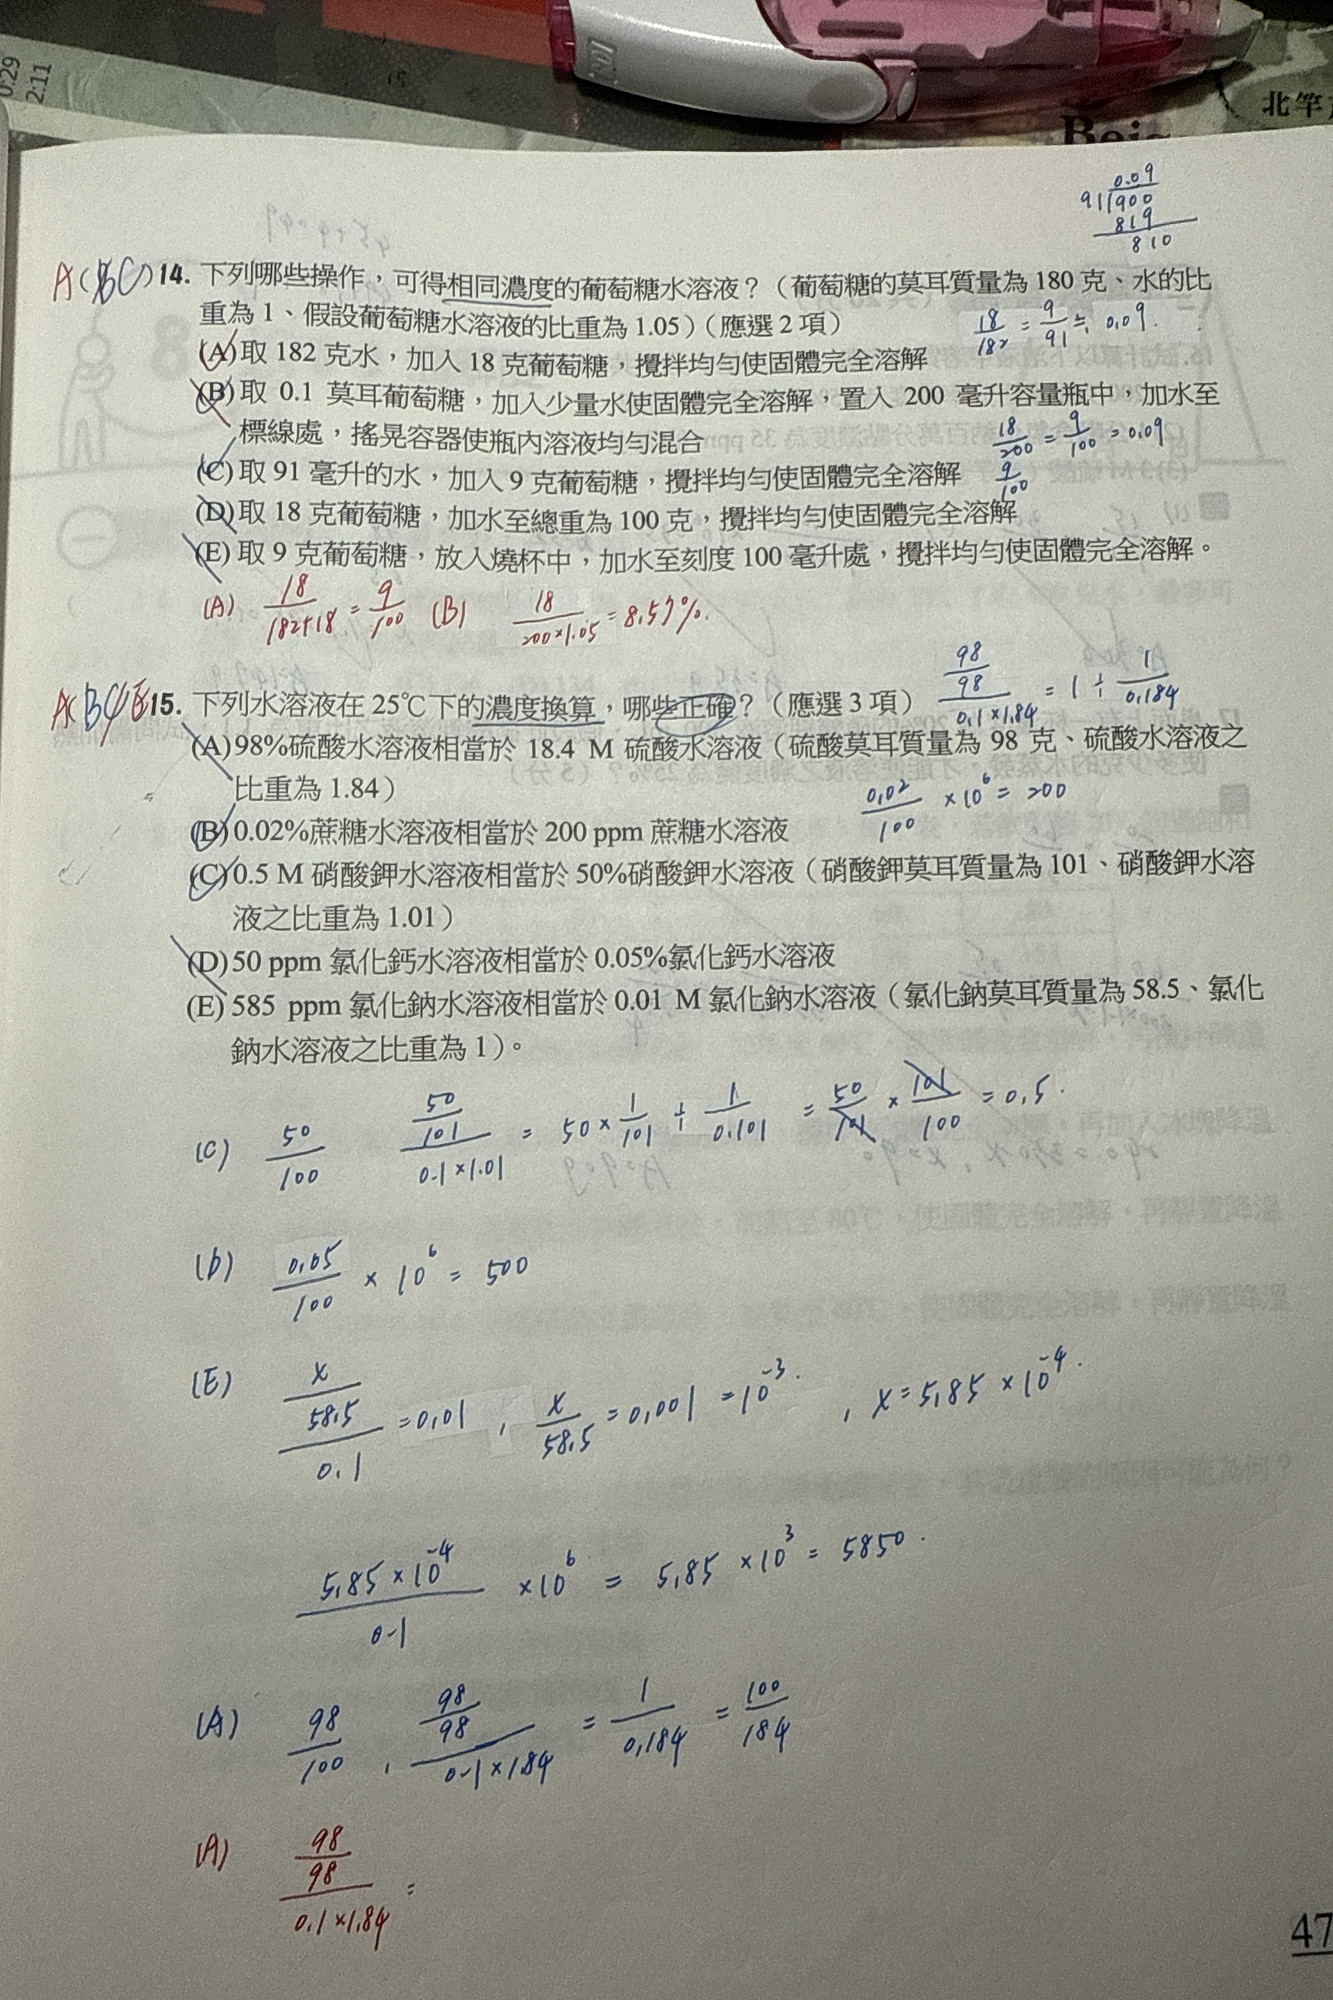 0:29
2:11
北竿
Beig
0.09
91√900
819
810
A(BC)14. 下列哪些操作，可得相同濃度的葡萄糖水溶液？（葡萄糖的莫耳質量為 180 克、水的比
重為 1、假設葡萄糖水溶液的比重為 1.05）（應選 2 項）
18/182 = 9/91 ≒ 0.09
(A)取 182 克水，加入 18 克葡萄糖，攪拌均勻使固體完全溶解
(B)取 0.1 莫耳葡萄糖，加入少量水使固體完全溶解，置入 200 毫升容量瓶中，加水至
標線處，搖晃容器使瓶內溶液均勻混合
18/200 = 9/100 = 0.09
(C)取 91 毫升的水，加入 9 克葡萄糖，攪拌均勻使固體完全溶解
9/100
(D)取 18 克葡萄糖，加水至總重為 100 克，攪拌均勻使固體完全溶解
(E)取 9 克葡萄糖，放入燒杯中，加水至刻度 100 毫升處，攪拌均勻使固體完全溶解。
(A) 18/182+18 = 9/100 (B) 18/200×1.05 = 8.57%.
98/98/0.1×1.84 = 1 ÷ 1/0.184
ABCE15. 下列水溶液在 25℃下的濃度換算，哪些正確？（應選 3 項）
(A)98%硫酸水溶液相當於 18.4 M 硫酸水溶液（硫酸莫耳質量為 98 克、硫酸水溶液之
比重為 1.84）
0.02/100 ×10⁶ = 200
(B)0.02%蔗糖水溶液相當於 200 ppm 蔗糖水溶液
(C)0.5 M 硝酸鉀水溶液相當於 50%硝酸鉀水溶液（硝酸鉀莫耳質量為 101、硝酸鉀水溶
液之比重為 1.01）
(D)50 ppm 氯化鈣水溶液相當於 0.05%氯化鈣水溶液
(E)585 ppm 氯化鈉水溶液相當於 0.01 M 氯化鈉水溶液（氯化鈉莫耳質量為 58.5、氯化
鈉水溶液之比重為 1）。
(C) 50/100 50/101/0.1×1.01 = 50 × 1/101 ÷ 1/0.101 = 50/101 × 101/100 = 0.5.
(D) 0.05/100 × 10⁶ = 500
(E) x/58.5/0.1 = 0.01, x/58.5 = 0.001 = 10⁻³. , x = 5.85 × 10⁻⁴.
5.85×10⁻⁴/0.1 ×10⁶ = 5.85 ×10³ = 5850.
(A) 98/100, 98/98/0.1×1.84 = 1/0.184 = 100/184
(A) 98/98/0.1×1.84 =
47